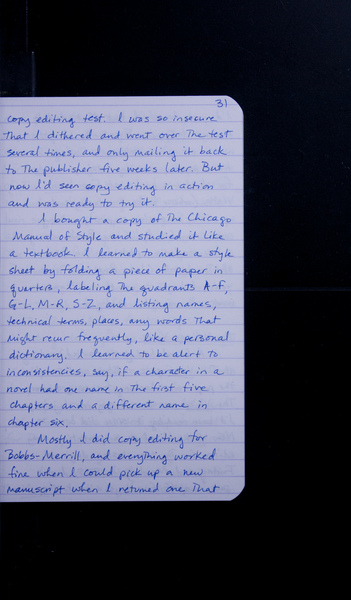 31
copy editing test. I was so insecure
that I dithered and went over the test
several times, and only mailing it back
to the publisher five weeks later. But
now I'd seen copy editing in action
and was ready to try it.
I bought a copy of The Chicago
Manual of Style and studied it like
a textbook. I learned to make a style
sheet by folding a piece of paper in
quarters, labeling the quadrants A-F,
G-L, M-R, S-Z, and listing names,
technical terms, places, any words that
might recur frequently, like a personal
dictionary. I learned to be alert to
inconsistencies, say, if a character in a
novel had one name in the first five
chapters and a different name in
chapter six.
Mostly I did copy editing for
Bobbs-Merrill, and everything worked
fine when I could pick up a new
manuscript when I returned one that